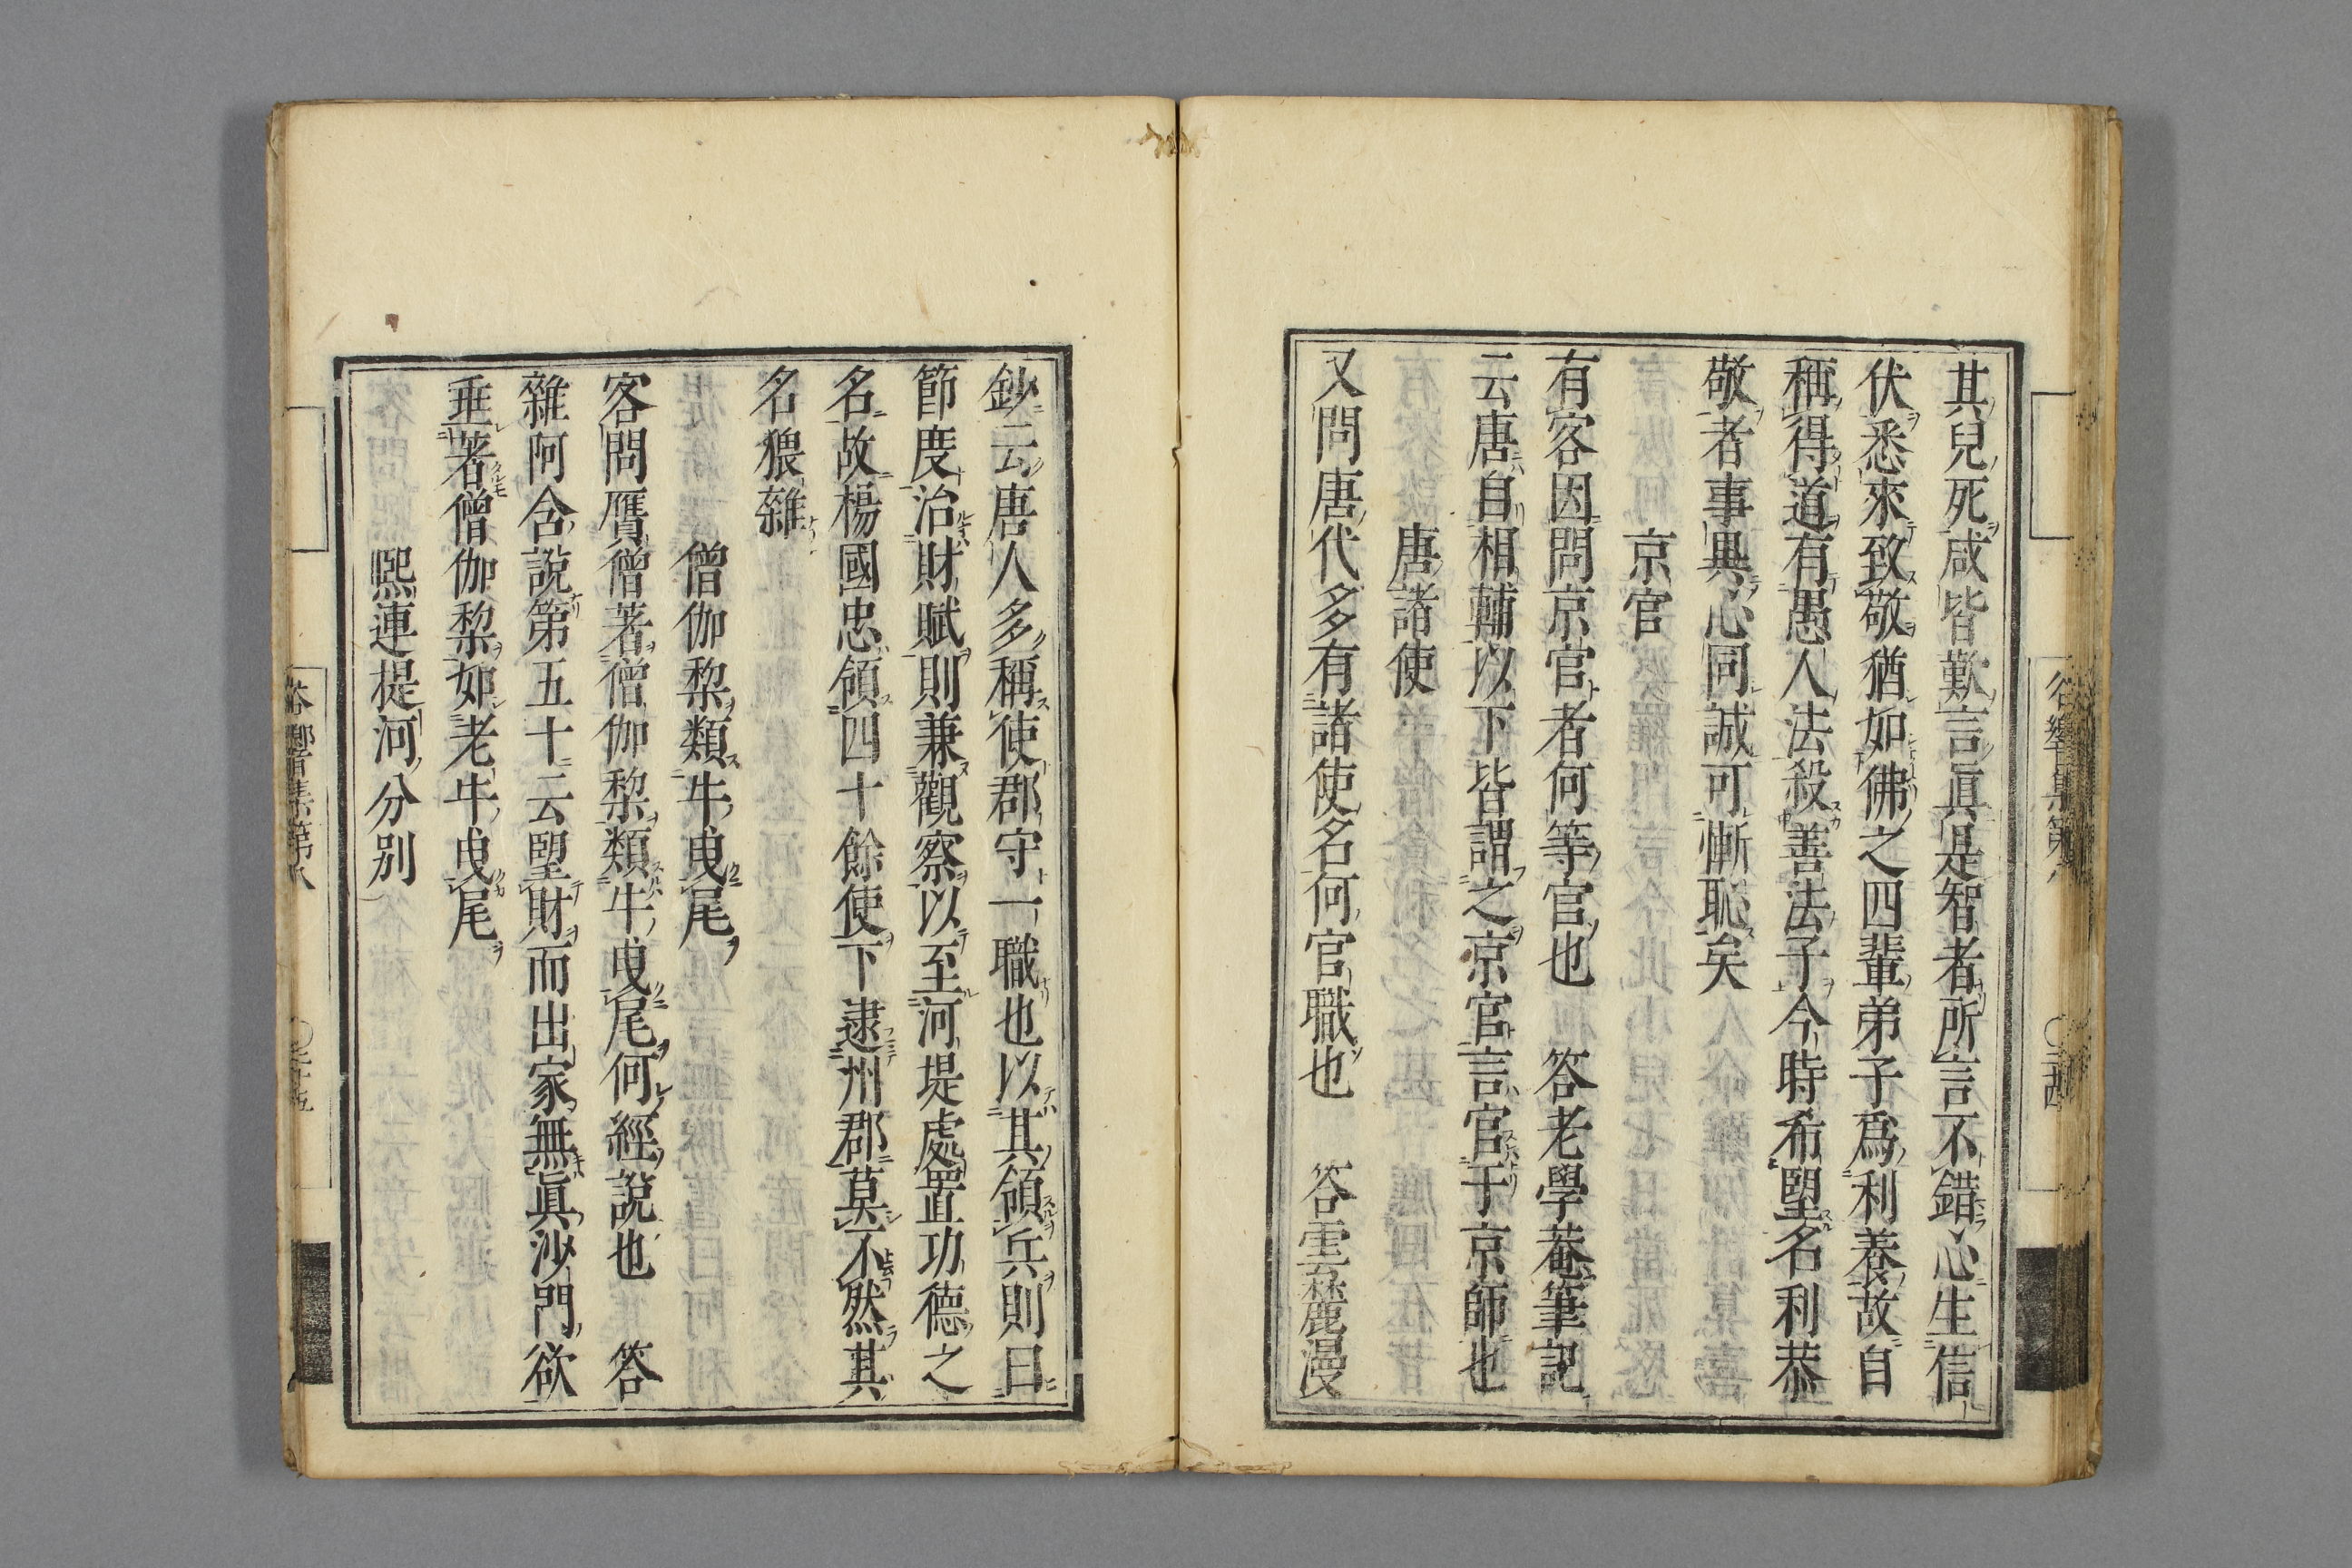 其兒死咸皆歎言眞是智者所言不錯心生信
伏悉來致敬猶如佛之四輩弟子爲利養故自
稱得道有愚人法殺善法子今時希望名利恭
敬者事異心同誠可慚恥矣
京官
有客因問京官者何等官也 答老學菴筆記
云唐自相輔以下皆謂之京官言官于京師也
唐諸使
又問唐代多有諸使名何官職也 答雲麓漫
鈔云唐人多稱使郡守一職也以其領兵則曰
節度治財賦則兼觀察以至河堤處置功德之
名故楊國忠領四十餘使下逮州郡莫不然其
名猥雜
僧伽梨類牛曳尾
客問贋僧著僧伽梨類牛曳尾何經說也 答
雜阿含說第五十二云朢財而出家無眞沙門欲
垂著僧伽梨如老牛曳尾
熙連提河分別
谷響集第八